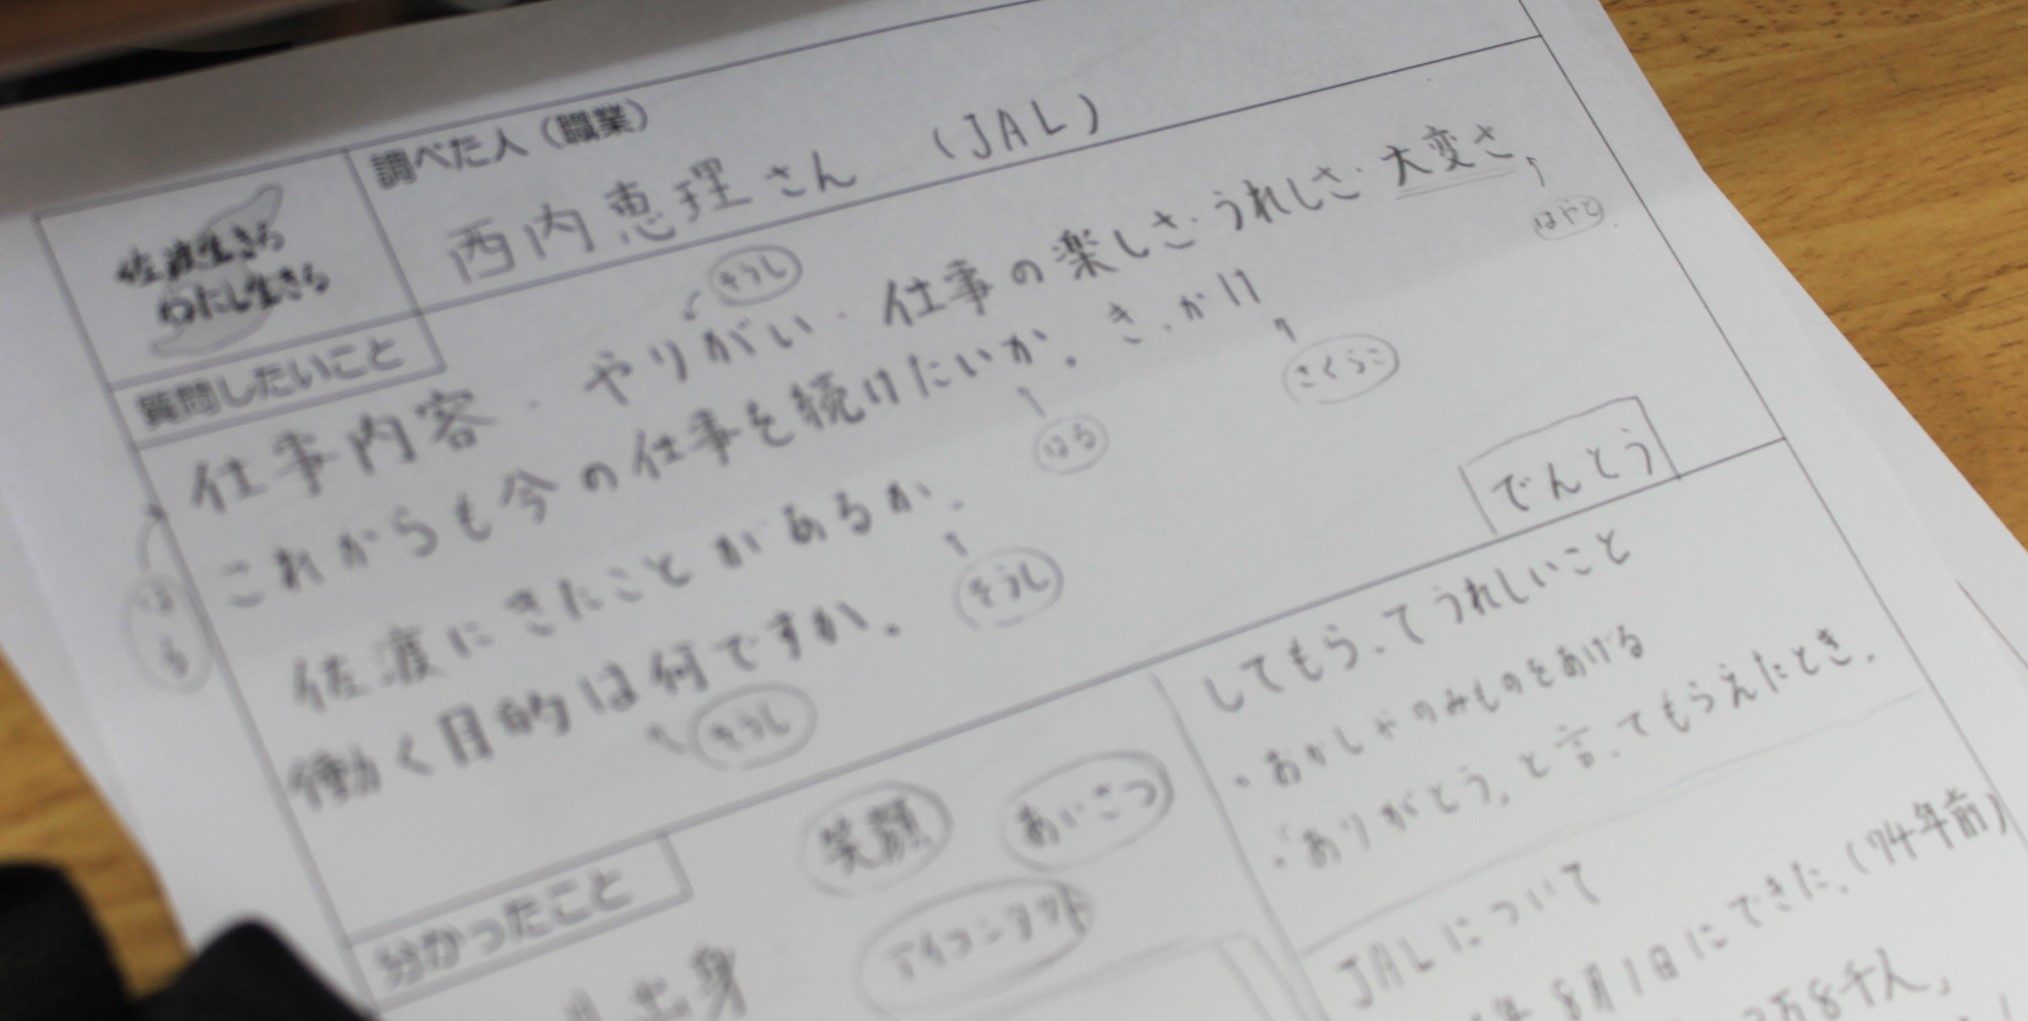 調べた人（職業）
西内恵理さん （JAL）
佐渡生きる
わたし生きる
質問したいこと
仕事内容・やりがい・仕事の楽しさ・うれしさ・大変さ
そうし
はやと
これからも今の仕事を続けたいか。きっかけ
はる
さくらこ
はる
佐渡にきたことがあるか。
そうし
働く目的は何ですか。
そうし
でんとう
分かったこと
笑顔
あいさつ
アイコンタクト
出身
してもらってうれしいこと
・おかしやのみものをあげる
・「ありがとう」と言ってもらえたとき。
JALについて
年8月1日にできた。(74年前)
万8千人